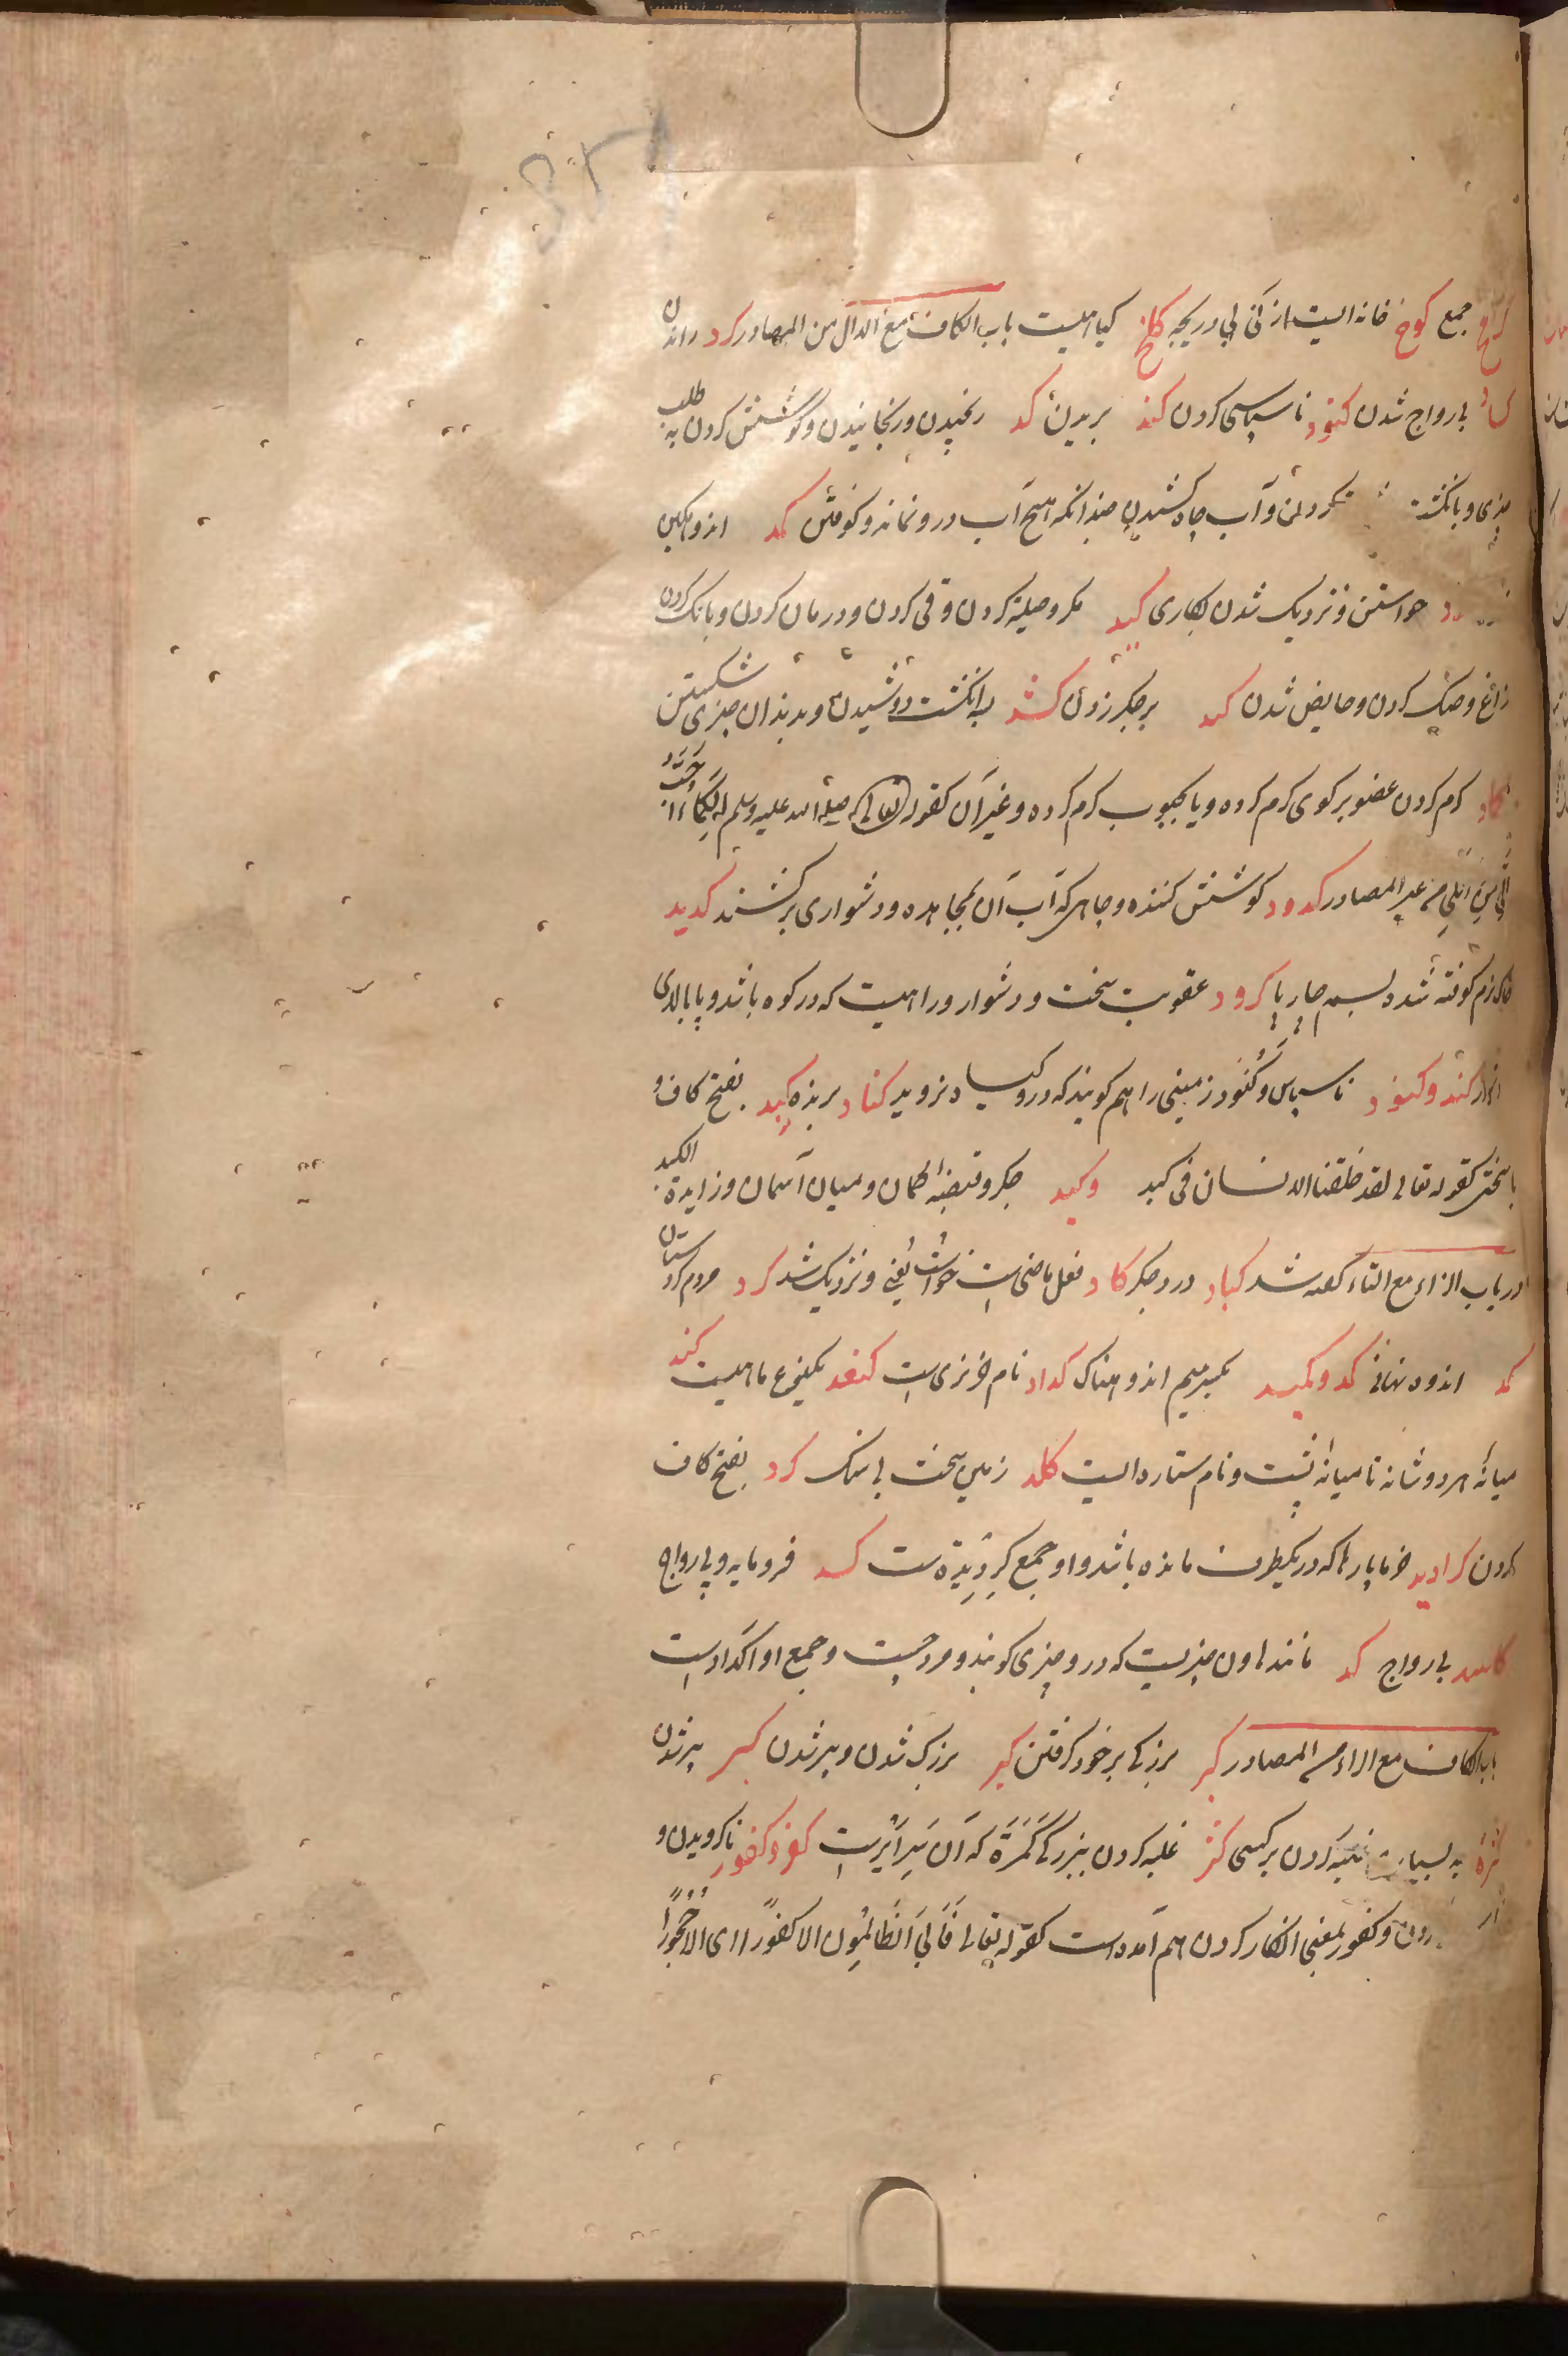 جمع کوخ خانه ایست از نی بی دریچه کلخ کیاهیست باب الکاف مع الدال من المصادر کرد راندن
کساد بی رواج شدن کنود ناسپاسی کردن کند بریدن کد رنجیدن و رنجانیدن و کوشش کردن به طلب
چیزی و بانکشت کردن و آب چاه کشیدن چندانکه هیچ آب درو نماند و کوفتن کمد اندوهکین
خواستن و نزدیک شدن بکاری کید مکر و حیله کردن و قی کردن و درمان کردن و بانک کردن
زاغ و جنک کردن و حایض شدن کبد بر جکر زدن کشد به انکشت دوشیدن و بدندان چیزی شکستن
کماد کرم کردن عضو بر کوی کرم کرده و یا بچوب کرم کرده و غیر آن کقوله صلی الله علیه وسلم الکماد احب
الی من الکی من غیر المصادر کدود کوشش کننده و چاهی که آب آن بمجاهده و دشواری برکشند کدید
خاک نرم کوفته شده بسم چارپا کؤود عقوبت سخت و دشوار و راهیست که در کوه باشد و یا بالای
کند و کنود ناسپاس و کنود زمینی را هم کویند که درو کیاه نروید کناد برنده کبد بفتح کاف و
با سختی کقوله تعالی لقد خلقنا الانسان فی کبد وکبد جکر و قبضه کمان و میان آسمان و زایدة الکبد
در باب الزاء مع التاء کفته شد کباد درد جکر کاد فعل ماضی است خواست یعنی و نزدیک شد کرد مردم کردستان
کمد اندوه نهانی کمد و کمید بکسر میم اندوهناک کداد نام خر نری است کنعد بکنوع ماهیست کتد
میانه هر دو شانه تا میانه پشت و نام ستاره ایست کلد زمین سخت بی سنک کرد بفتح کاف
کردن کرادید خرما پارها که در یکطرف مانده باشد و او جمع کردیدة ست کسد فرومایه و بی رواج
کاسد بی رواج کد مانند هاون چیزیست که درو چیزی کوبند و مردیست و جمع او اکدادست
باب الکاف مع الراء من المصادر کبر بزرکی بر خود کرفتن کبر بزرک شدن و پیر شدن کبر پیر شدن
کثرة به بسیاری غلبه کردن بر کسی کثر غلبه کردن ببزرکی کمرة که آن سر ایرست کفر و کفور ناکرویدن و
و کفور بمعنی انکار کردن هم آمده است کقوله تعالی فابی الظالمون الا کفورا ای الا جحودا